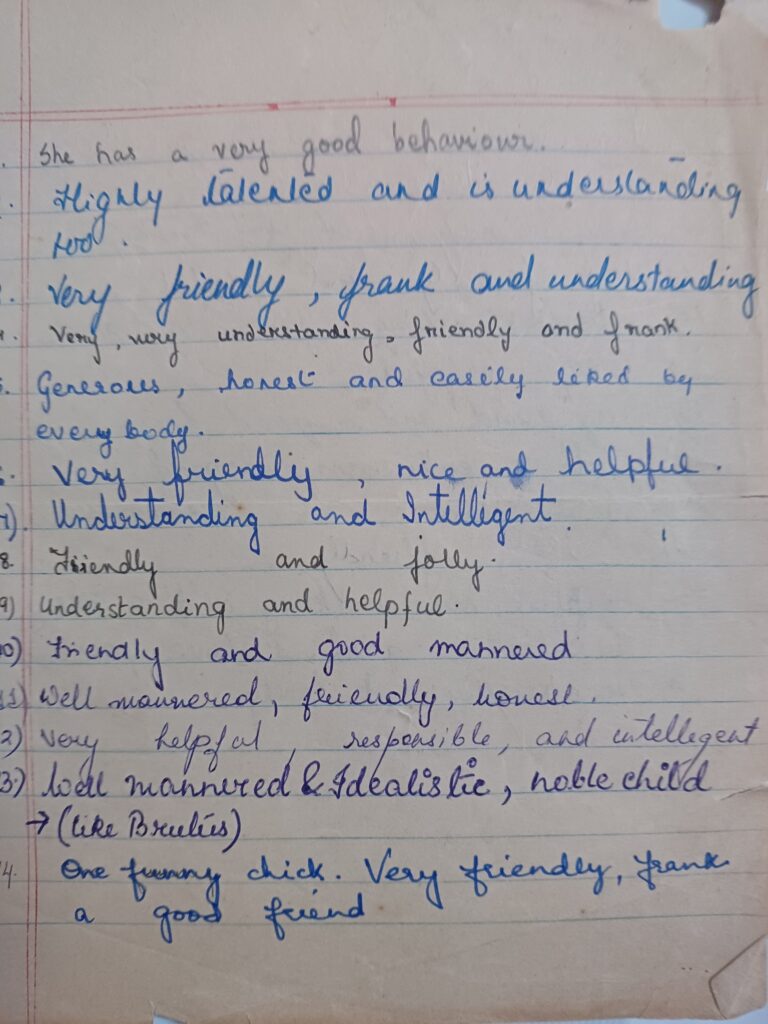 . She has a very good behaviour.
. Highly talented and is understanding
too.
. Very friendly, frank and understanding
. Very, very understanding, friendly and frank.
. Generous, honest and easily liked by
everybody.
. Very friendly, nice and helpful.
7). Understanding and Intelligent.
8. Friendly and jolly.
9) Understanding and helpful.
10) Friendly and good mannered
11) Well mannered, friendly, honest.
2) Very helpful, responsible, and intellegent
3) Well mannered & Idealistic, noble child
→ (like Brutus)
4. One funny chick. Very friendly, frank
a good friend